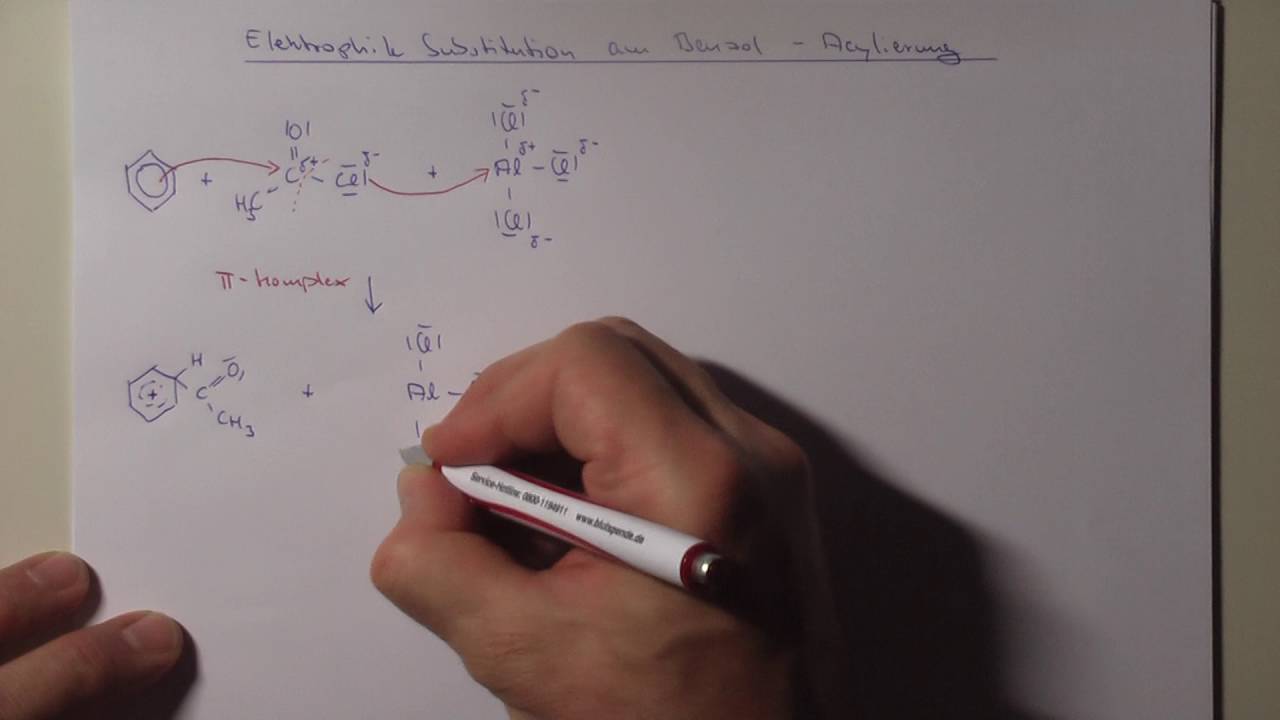 Elektrophile Substitution am Benzol - Acylierung
|O| Cl δ-
|| δ+ δ- δ+ δ-
+ C - Cl| + Al - Cl|
H3C |
Cl δ-
π-Komplex
|Cl|
H O
+ C + Al -
CH3
Service-Hotline: 0800-1194911 www.blutspende.de